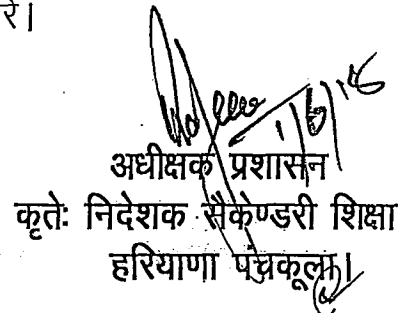 रे।
1/6/18
अधीक्षक प्रशासन
कृतेः निदेशक सैकेण्डरी शिक्षा
हरियाणा पंचकूला।